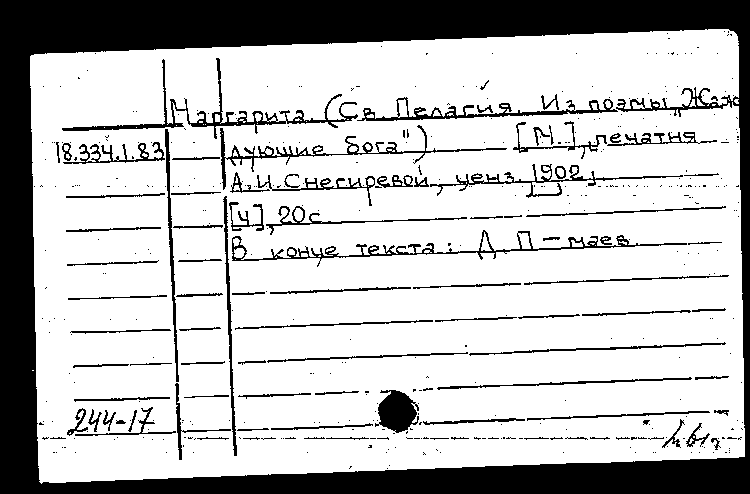 Маргарита. (Св. Пелагия. Из поэмы „Жаж
18.334.1.83 дующие бога"). [М.], печатня
А.И.Снегиревой, ценз. [1902].
[4], 20с.
В конце текста: Д. П-маев
244-17